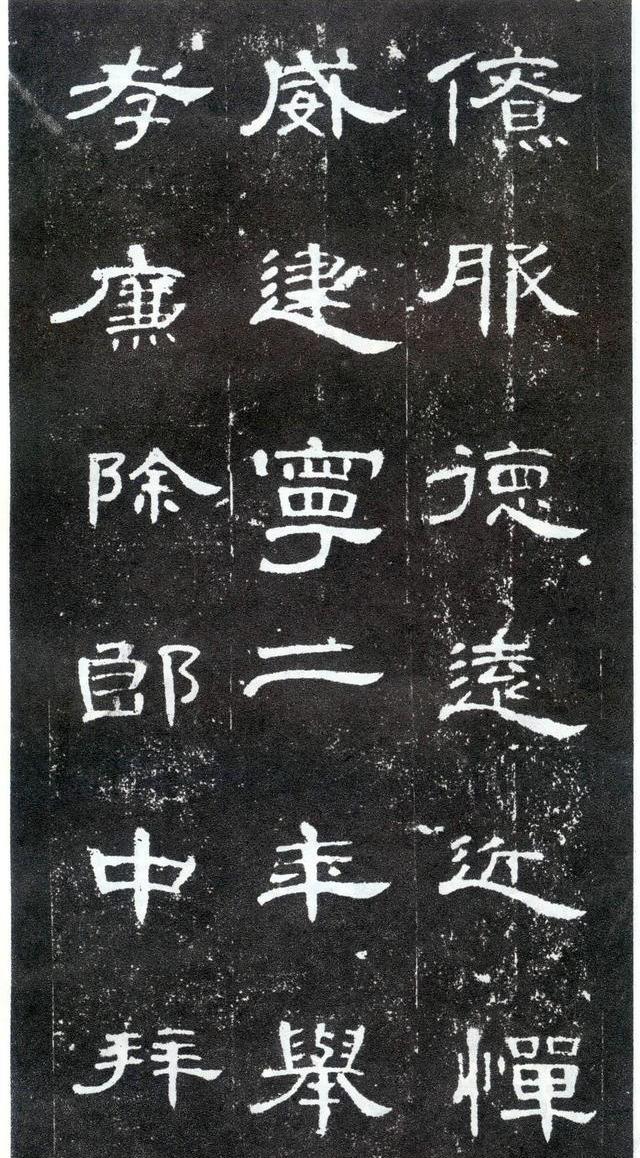 傄服德遠近憚
威建寧二年舉
孝廉除郎中拜